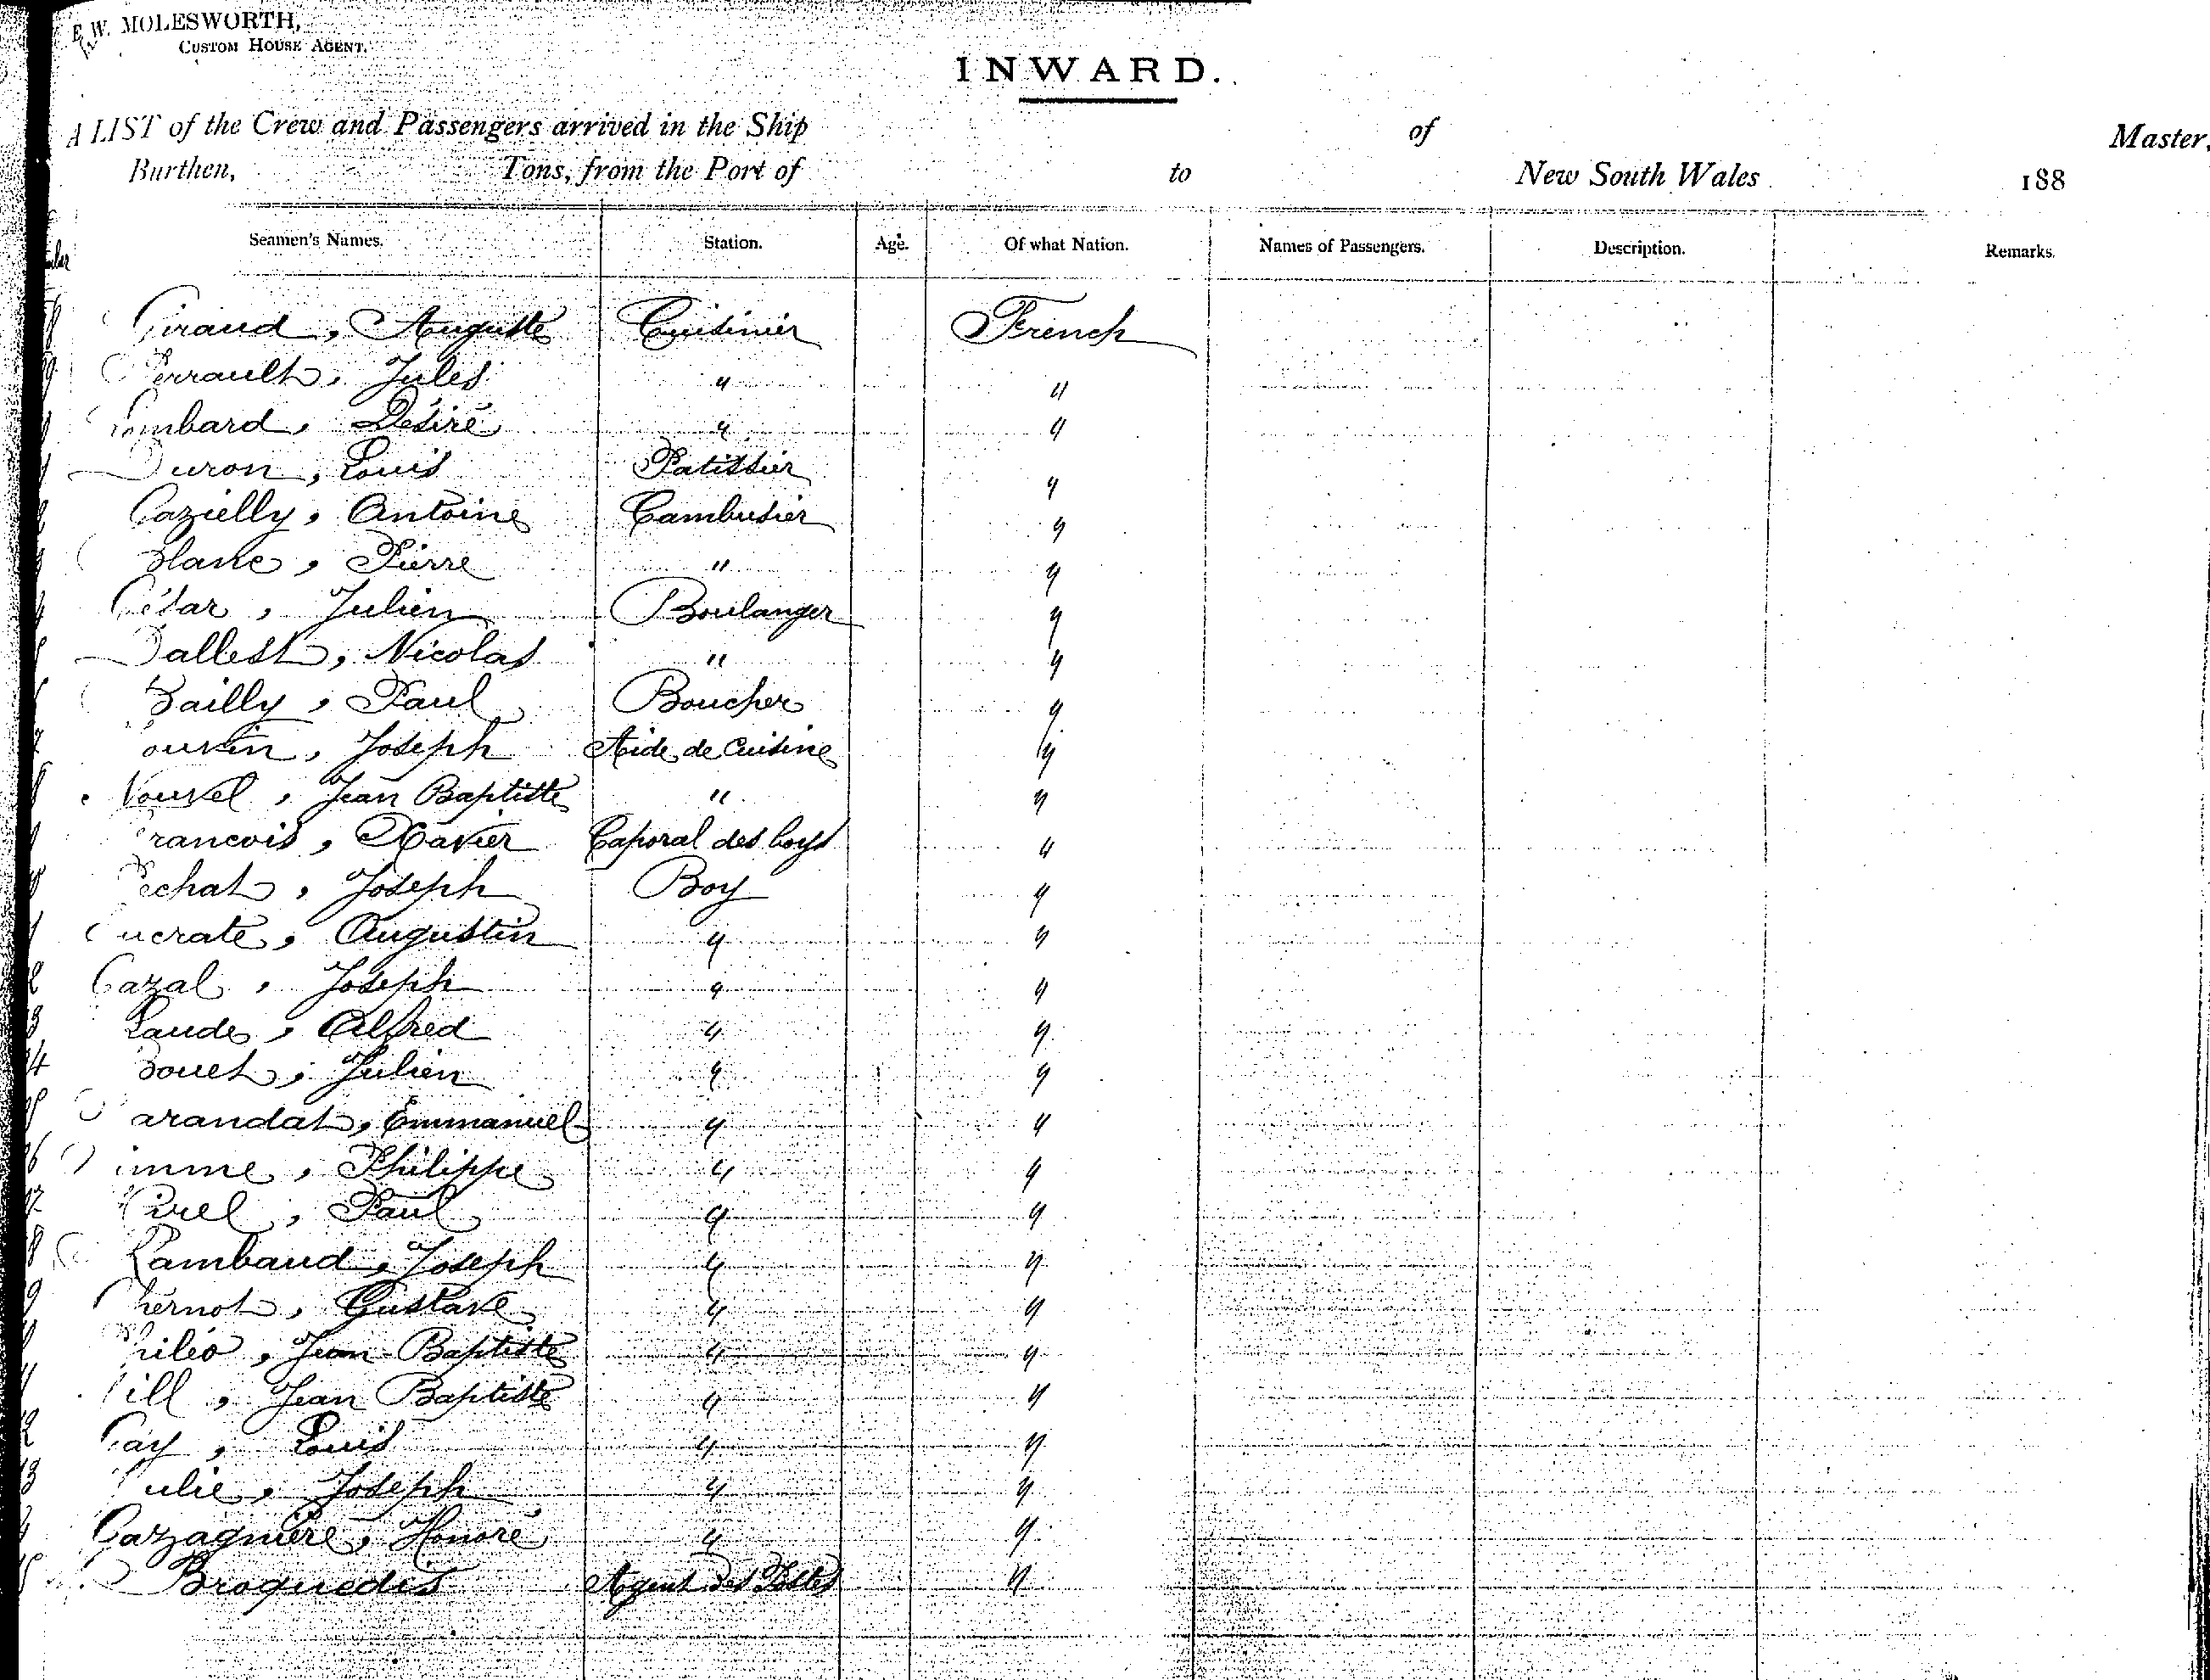 E. W. MOLESWORTH,
CUSTOM HOUSE AGENT.
INWARD.
A LIST of the Crew and Passengers arrived in the Ship of Master,
Burthen, Tons, from the Port of to New South Wales 188
Seamen's Names. Station. Age. Of what Nation. Names of Passengers. Description. Remarks.
Giraud, Auguste Cuisinier French
Perrault, Jules " "
Lombard, Désiré " "
Duron, Louis Patissier "
Cazielly, Antoine Cambusier "
Blanc, Pierre " "
César, Julien Boulanger "
Dallest, Nicolas " "
Bailly, Paul Boucher "
Joseph Aide de Cuisine "
Nouvel, Jean Baptiste " "
Francois, Xavier Caporal des boys "
Pechat, Joseph Boy "
Augustin " "
Cazal, Joseph " "
Laude, Alfred " "
Bouet, Julien " "
Emmanuel " "
Philippe " "
Paul " "
Lambaud, Joseph " "
Chernot, Gustave " "
Philéo, Jean Baptiste " "
Jean Baptiste " "
Gay, Louis " "
Julie, Joseph " "
Cazagnière, Honoré " "
Broquedis Agent des Postes "